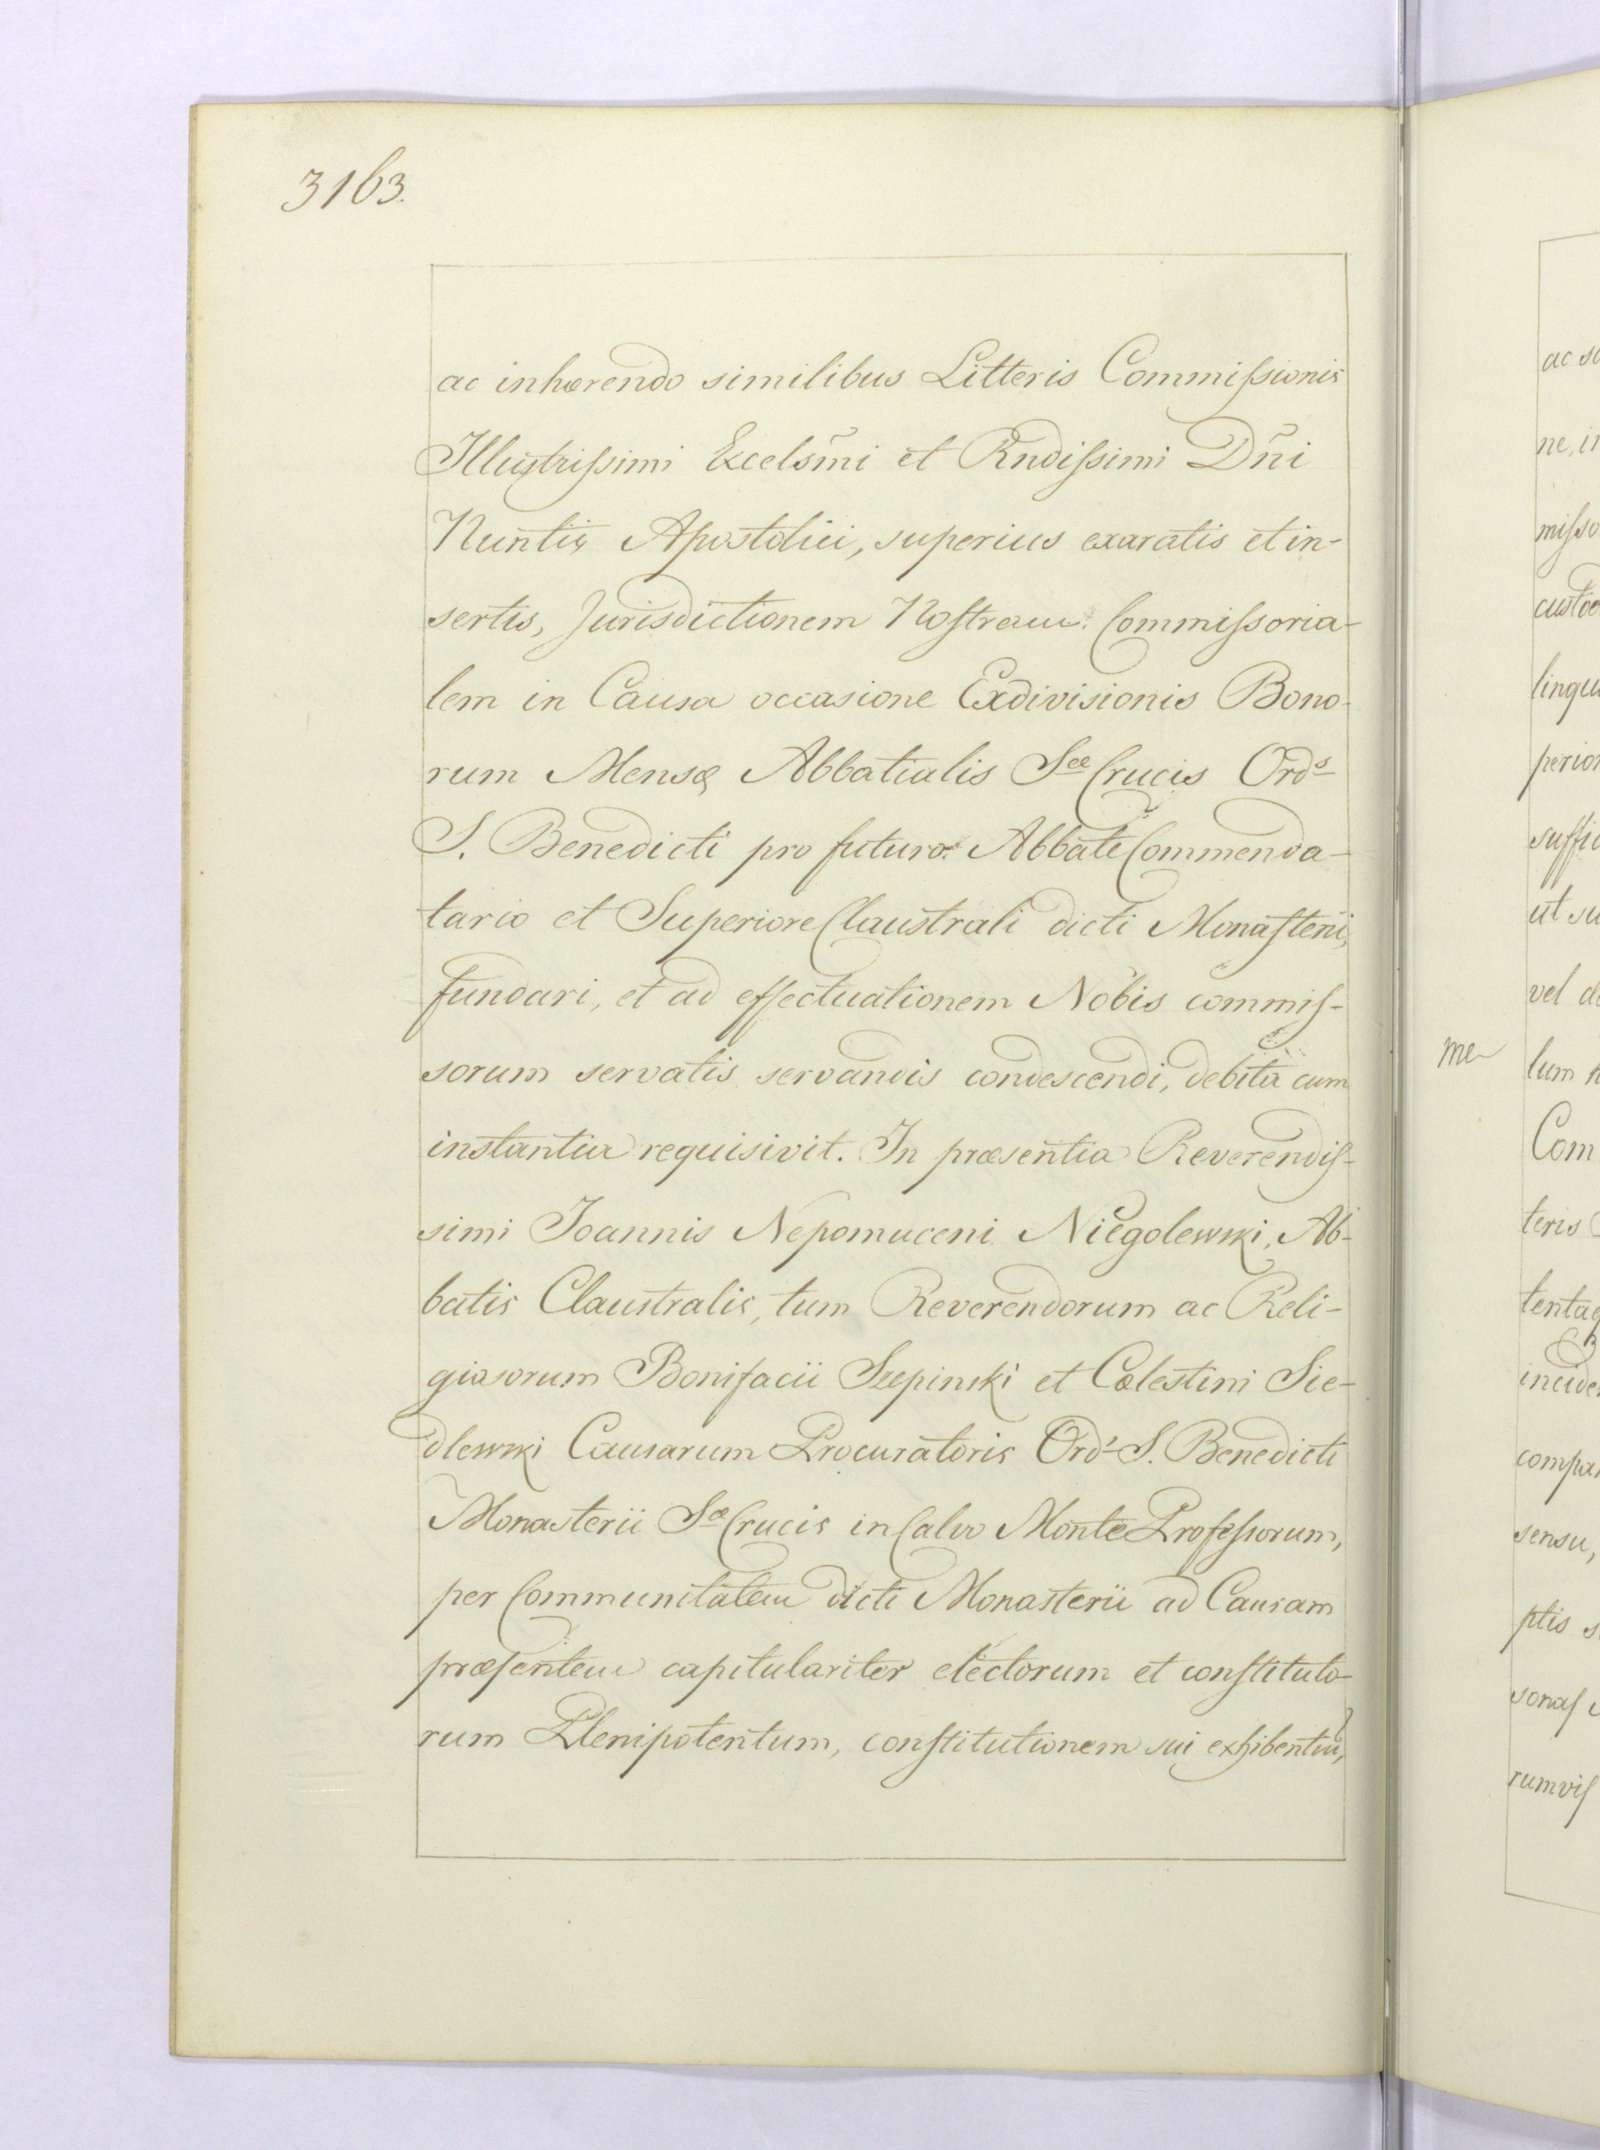 3163.
ac inhærendo similibus Litteris Commissionis
Illustrissimi Excelsm̃i et Rndissimi Dñi
Nuntii Apostolici, superius exaratis et in-
sertis, Jurisdictionem Nostram Commissoria-
lem in Causa occasione Exdivisionis Bono-
rum Mensæ Abbatialis Scæ Crucis Ords
S. Benedicti pro futuro Abbate Commenda-
tario et Superiore Claustrali dicti Monasterii,
fundari, et ad effectuationem Nobis commis-
sorum servatis servandis condescendi, debita cum
instantia requisivit. In præsentia Reverendis-
simi Joannis Nepomuceni Niegolewski, Ab-
batis Claustralis, tum Reverendorum ac Reli-
giosorum Bonifacii Szepinski et Cælestini Sie-
dlewski Causarum Procuratoris Ords S. Benedicti
Monasterii Sæ Crucis in Calvo Monte Professorum,
per Communitatem dicti Monasterii ad Causam
præsentem capitulariter electorum et constituto-
rum Plenipotentum, constitutionem sui exhibentiu,
ac
ne, in
misso
custod
lingu
perior
suffic
ut su
vel d
me
lum
Com
teris
tenta
incide
compa
sensu,
ptis s
sonas
rumvis